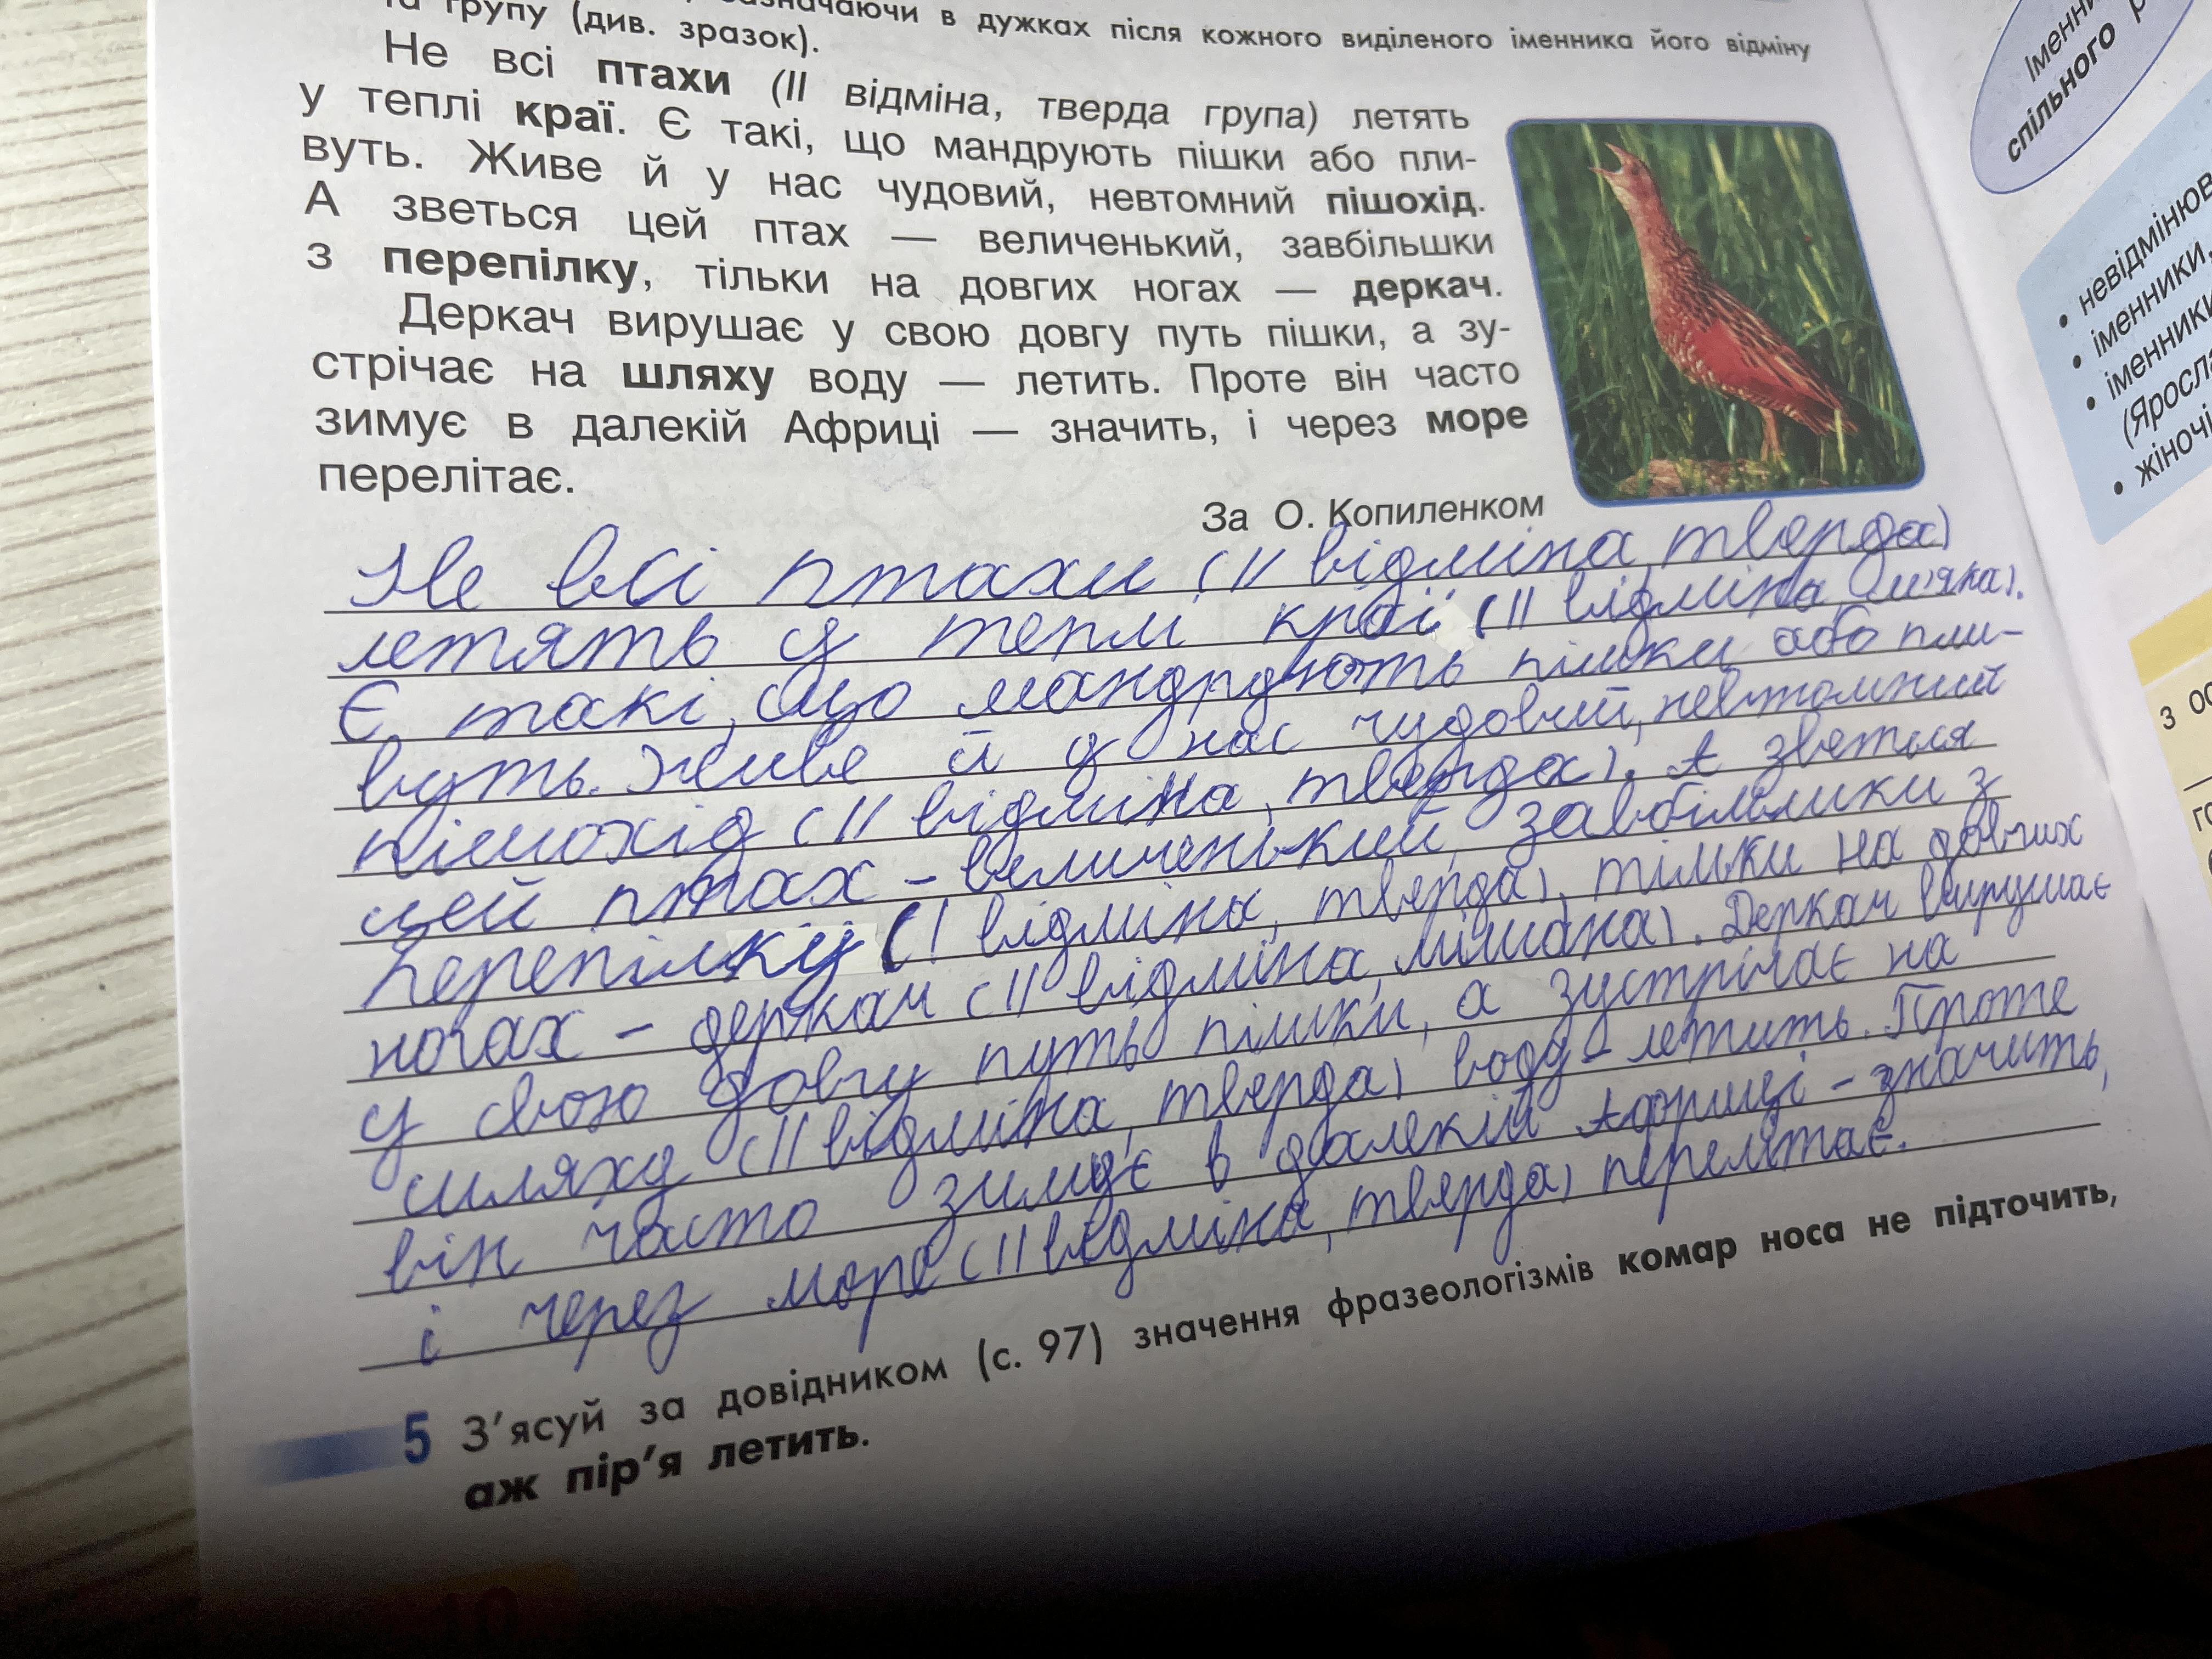 та групу (див. зразок).
зазначаючи в дужках після кожного виділеного іменника його відміну
Не всі птахи (II відміна, тверда група) летять
у теплі краї. Є такі, що мандрують пішки або пли-
вуть. Живе й у нас чудовий, невтомний пішохід.
А зветься цей птах — величенький, завбільшки
з перепілку, тільки на довгих ногах — деркач.
Деркач вирушає у свою довгу путь пішки, а зу-
стрічає на шляху воду — летить. Проте він часто
зимує в далекій Африці — значить, і через море
перелітає.
За О. Копиленком
Не всі птахи (II відміна, тверда)
летять у теплі краї (II відміна м'яка).
Є такі, що мандрують пішки або пли-
вуть. Живе й у нас чудовий, невтомний
пішохід (II відміна, тверда). А зветься
цей птах – величенький, завбільшки з
перепілку (I відміна, тверда), тільки на довгих
ногах – деркач (II відміна, мішана). Деркач вирушає
у свою довгу путь пішки, а зустрічає на
шляху (II відміна, тверда) воду – летить. Проте
він часто зимує в далекій Африці – значить,
і через море (II відміна, тверда) перелітає.
5 З'ясуй за довідником (с. 97) значення фразеологізмів комар носа не підточить,
аж пір'я летить.
10
Іменни
спільного р
• невідмінюв
• іменники,
• іменники
(Яросла
• жіночі
з ос